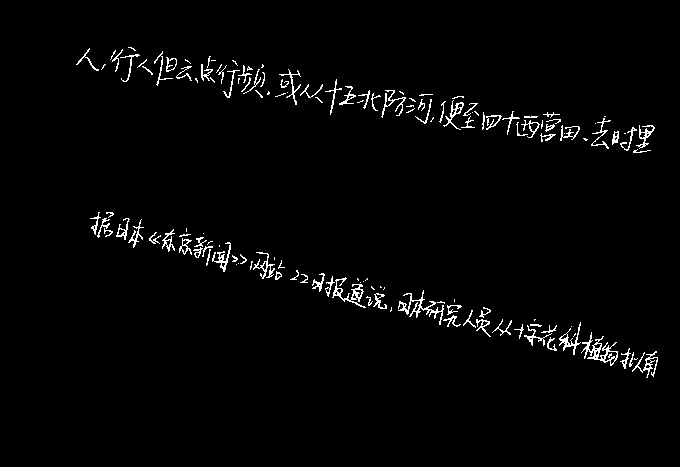 人,行人但云点行频.或从十五北防河,便至四十西营田.去时里
据日本《东京新闻》网站22日报道说,日本研究人员从十字花科植物拟南